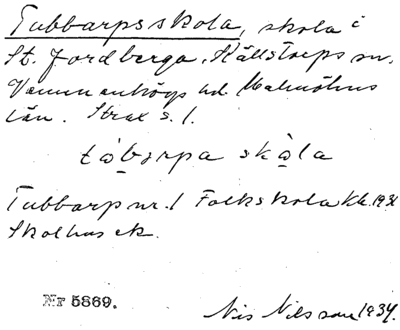 Tubbarps skola, skola i
St. Jordberga, Källstorps sn.
Vemmenhögs hd. Malmöhus
län. Strax s. 1.
skə̀la
Tubbarp nr. 1 Folkskola Kbl. 1931
Skolhus ek.
Nr 5869.
Nils Nilsson 1934.